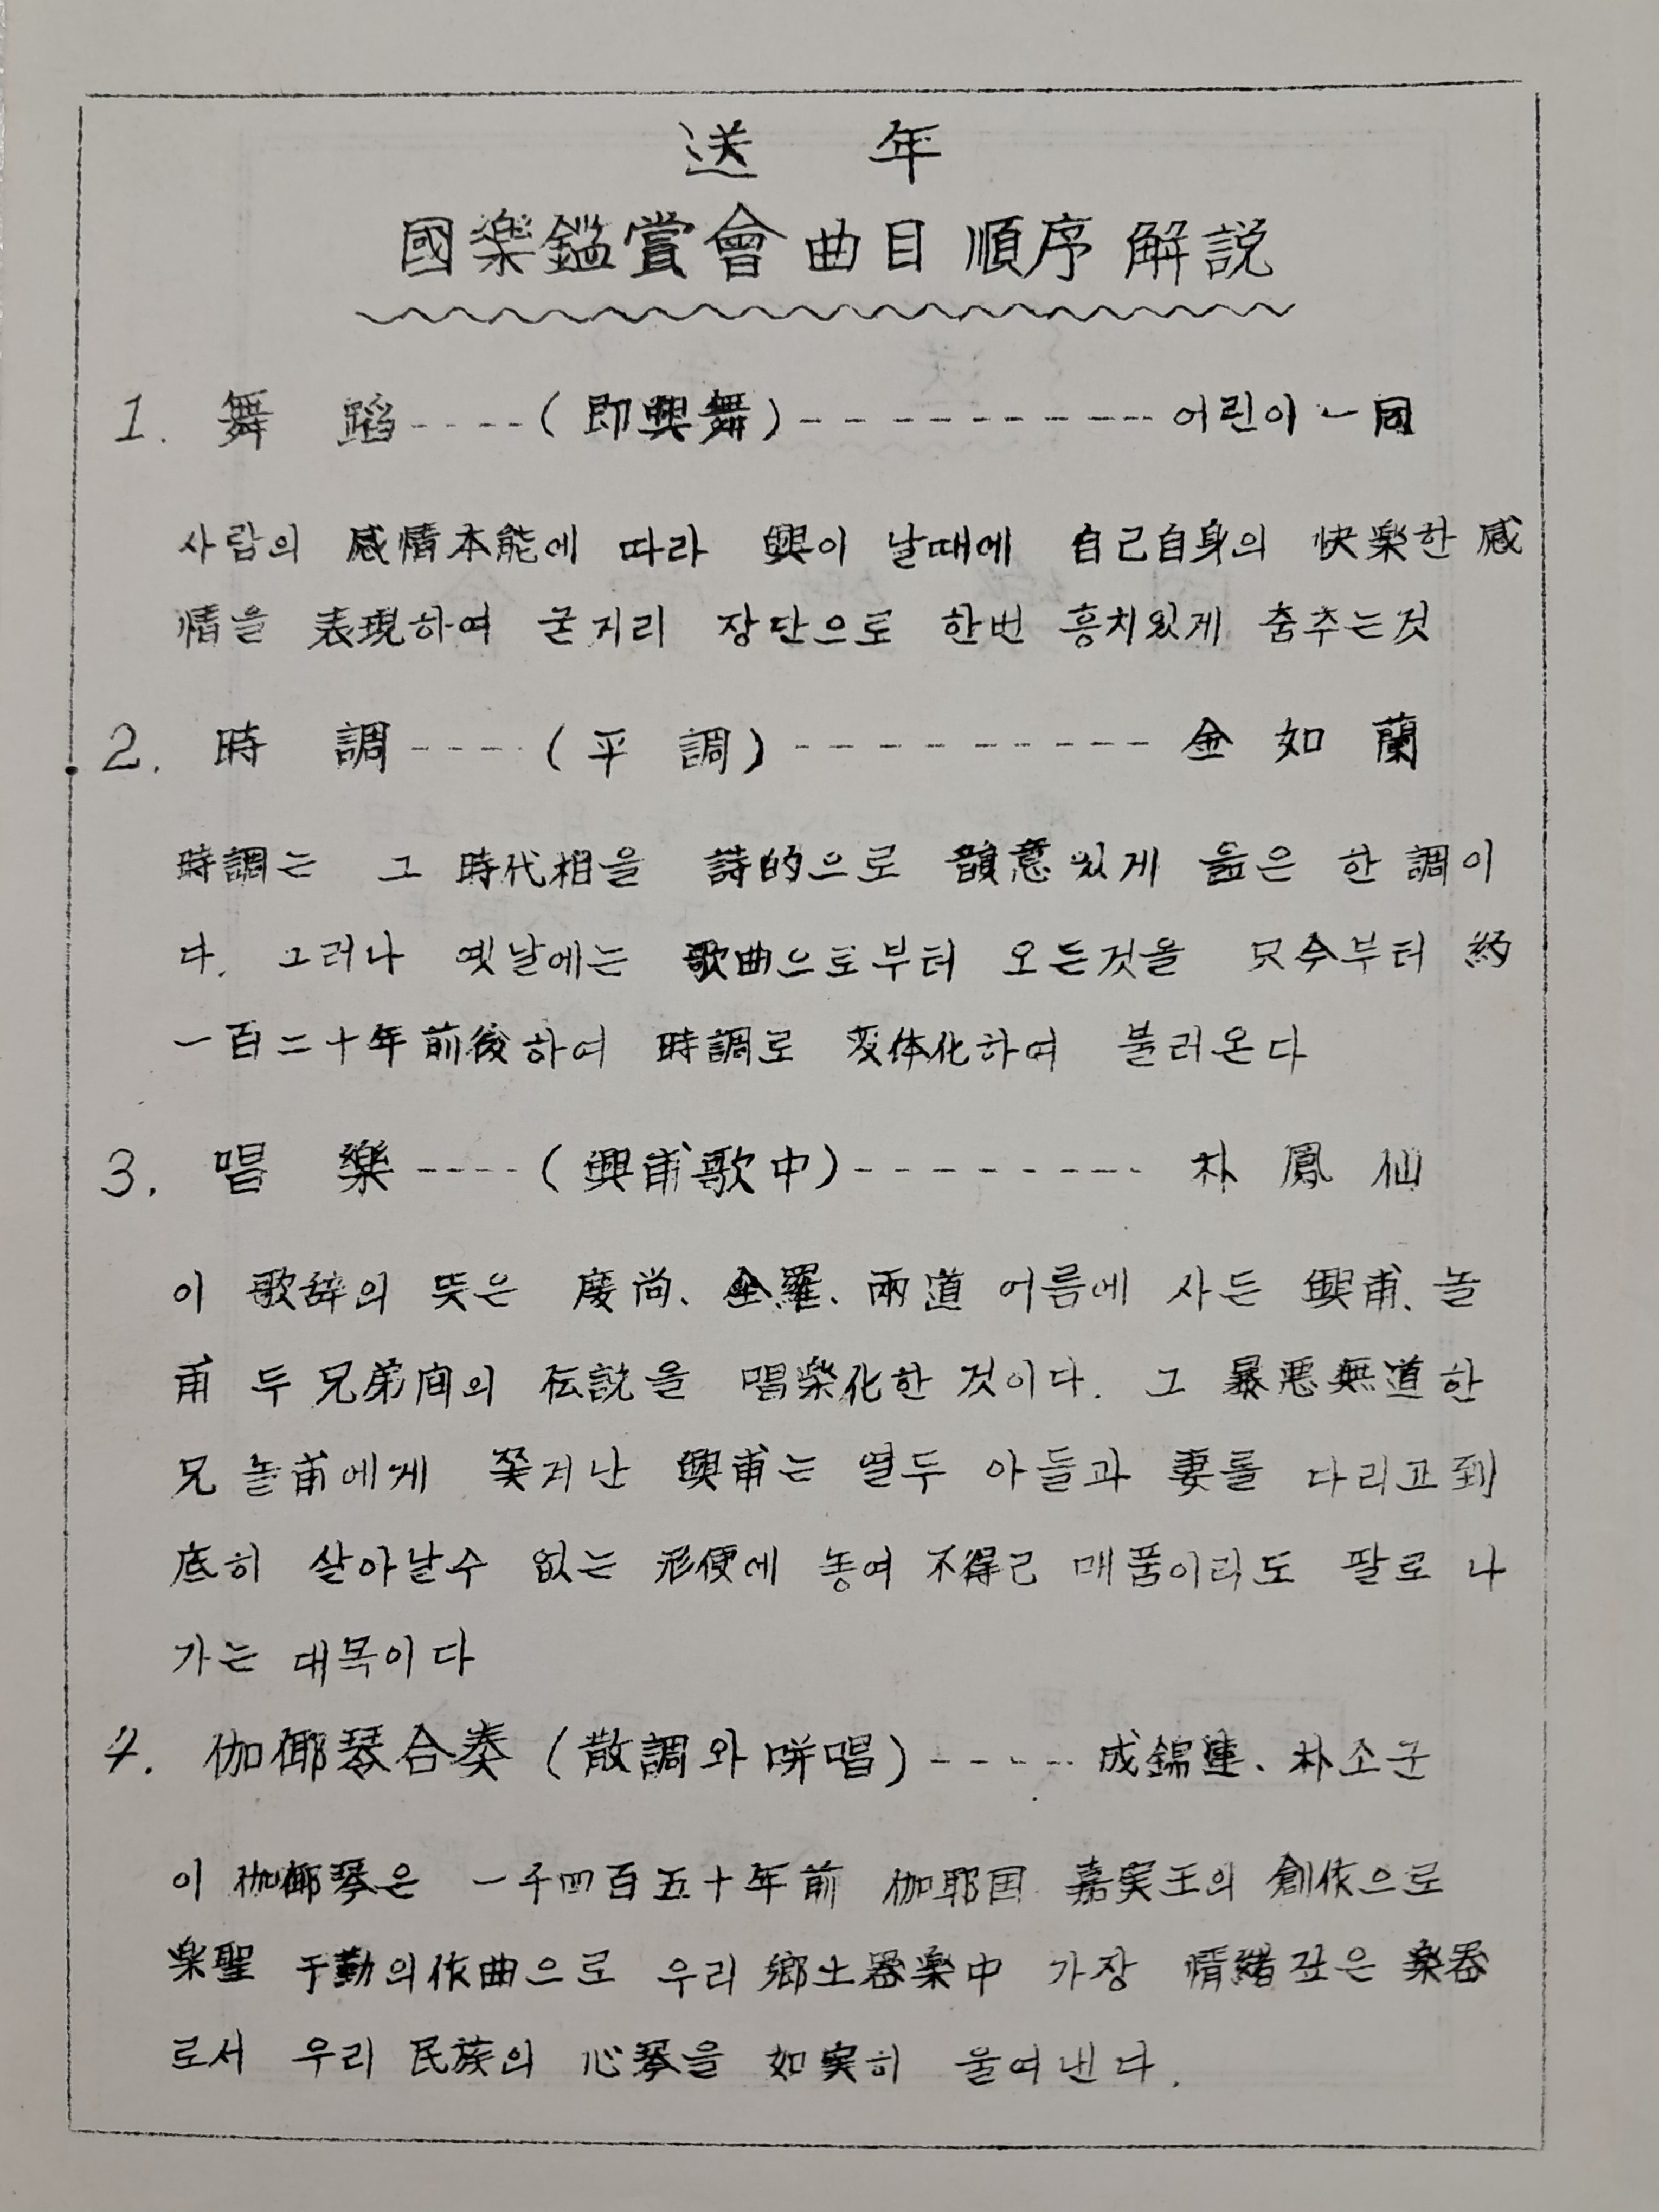 送 年
國楽鑑賞會 曲目 順序 解説
1. 舞 蹈----(即興舞)----------어린이 一同
사람의 感情本能에 따라 興이 날때에 自己自身의 快楽한 感
情을 表現하여 굳지리 장단으로 한번 흥치있게 춤추는것
2. 時 調----(平 調)----------金 如 蘭
時調는 그 時代相을 詩的으로 韻意있게 읊은 한 調이
다. 그러나 옛날에는 歌曲으로부터 오든것을 只今부터 約
一百二十年前後하여 時調로 変体化하여 불러온다
3. 唱 樂----(興甫歌中)---------朴 鳳 仙
이 歌辞의 뜻은 慶尚、全羅、兩道 어름에 사든 興甫、놀
甫 두 兄弟间의 伝説을 唱楽化한 것이다. 그 暴悪無道한
兄 놀甫에게 쫓겨난 興甫는 열두 아들과 妻를 다리고到
底히 살아날수 없는 形便에 놓여 不得已 매품이라도 팔로 나
가는 대목이다
4. 伽倻琴合奏 (散調와 咞唱)-----成錦連、朴소군
이 伽倻琴은 一千四百五十年前 伽耶国 嘉実王의 創作으로
楽聖 于勤의作曲으로 우리 鄕土器楽中 가장 情緖깊은 楽器
로서 우리 民族의 心琴을 如実히 울여낸다.